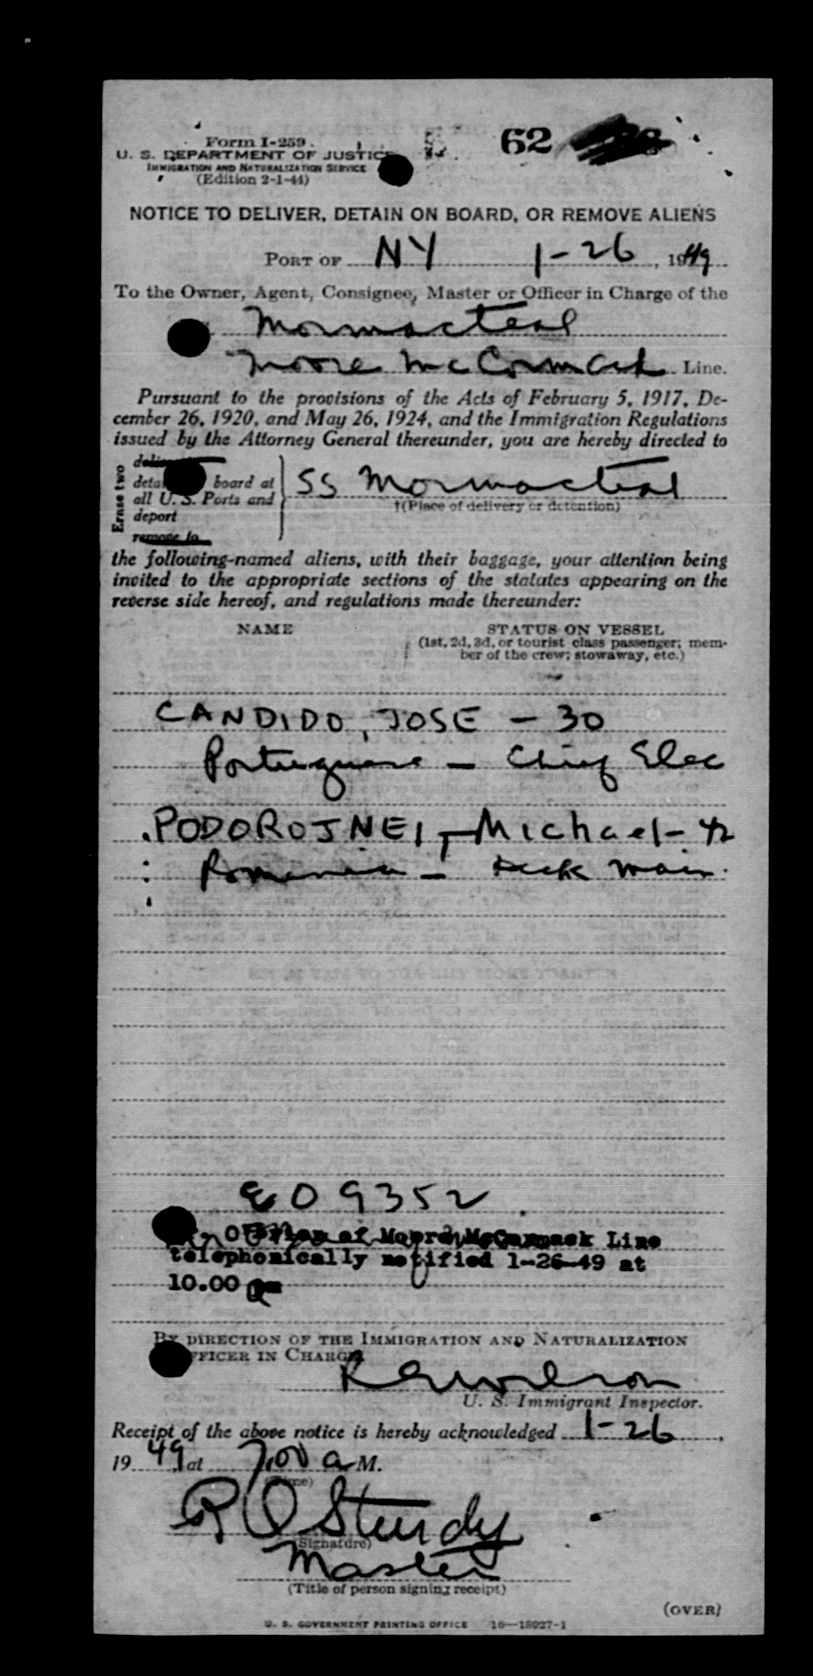 Form I-259
62
U. S. DEPARTMENT OF JUSTICE
IMMIGRATION AND NATURALIZATION SERVICE
(Edition 2-1-44)
NOTICE TO DELIVER, DETAIN ON BOARD, OR REMOVE ALIENS
PORT OF NY 1-26, 1949
To the Owner, Agent, Consignee, Master or Officer in Charge of the
Mormacteal
Moore McCormack Line.
Pursuant to the provisions of the Acts of February 5, 1917, De-
cember 26, 1920, and May 26, 1924, and the Immigration Regulations
issued by the Attorney General thereunder, you are hereby directed to
Erase two
board at
all U. S. Ports and
deport
remove to
SS Mormacteal
†(Place of delivery or detention)
the following-named aliens, with their baggage, your attention being
invited to the appropriate sections of the statutes appearing on the
reverse side hereof, and regulations made thereunder:
NAME STATUS ON VESSEL
(1st, 2d, 3d, or tourist class passenger; mem-
ber of the crew; stowaway, etc.)
CANDIDO, JOSE - 30
Portuguese - Chief Elec
PODOROJNEI, Michael - 42
Romania - Deck Main.
E09352
of Moore McCormack Line
telephonically notified 1-26-49 at
10.00
BY DIRECTION OF THE IMMIGRATION AND NATURALIZATION
OFFICER IN CHARGE
U. S. Immigrant Inspector.
Receipt of the above notice is hereby acknowledged 1-26,
1949 at 7:00 a M.
(Time)
R O Sturdy
(Signature)
Master
(Title of person signing receipt)
(OVER)
U. S. GOVERNMENT PRINTING OFFICE 16—18027-1